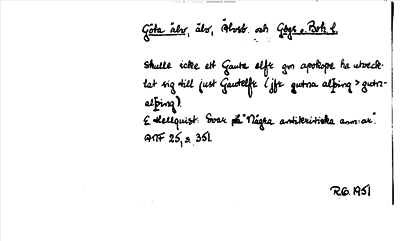 Göta älv, älv, Älvsb. och Gbgs o. Boh. l.
Skulle icke ett Gauta elfr gm apokope ha utveck-
lat sig till just Gautelfr (jfr gutna alþing > gutn-
alþing).
E Hellquist: Svar på "Några antikritiska anm:ar".
ANF 25, s. 351.
R.G. 1951